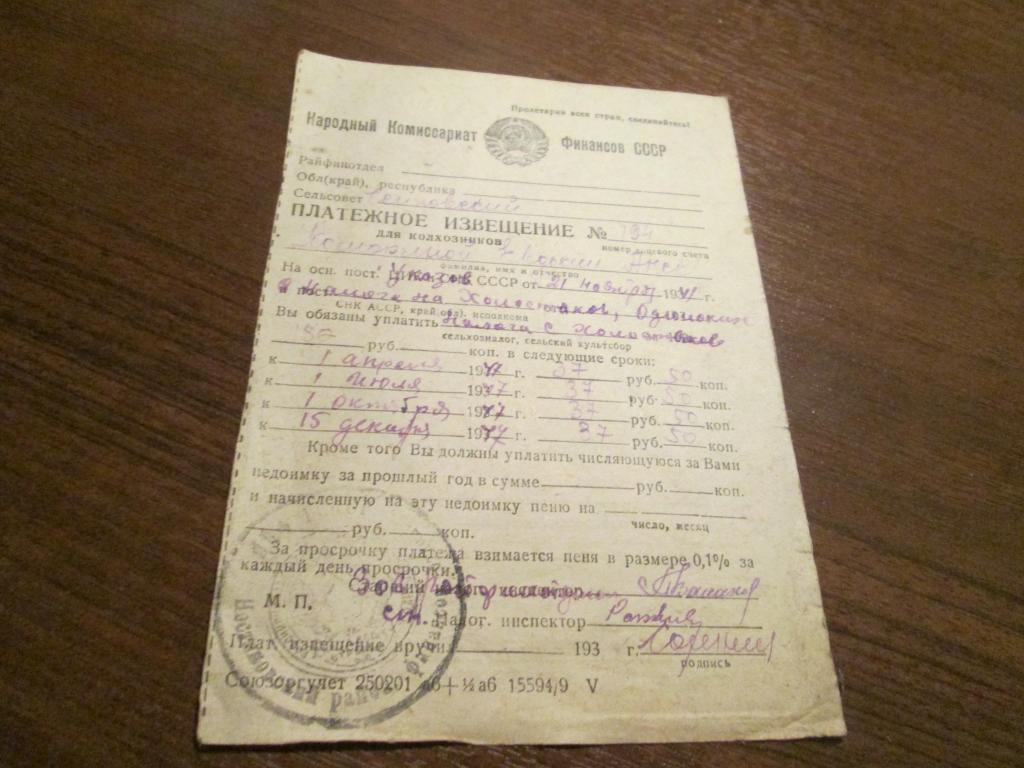 Пролетарии всех стран, соединяйтесь!
Народный Комиссариат Финансов СССР
Райфинотдел
Обл(край), республика
Сельсовет
ПЛАТЕЖНОЕ ИЗВЕЩЕНИЕ № 194
для колхозников номер лицевого счета
фамилия, имя и отчество
На осн. пост. Указов СССР от 21 ноября 1941 г.
и налога на Холостяков, Одиноких
СНК АССР, край(обл). исполкома
Вы обязаны уплатить Налога с Холостяков
сельхозналог, сельский культсбор
150 руб. коп. в следующие сроки:
к 1 апреля 1947 г. 37 руб. 50 коп.
к 1 июля 1937 г. 37 руб. 50 коп.
к 1 октября 1947 г. 37 руб. 50 коп.
к 15 декабря 1947 г. 37 руб. 50 коп.
Кроме того Вы должны уплатить числяющуюся за Вами
недоимку за прошлый год в сумме руб. коп.
и начисленную на эту недоимку пеню на
число, месяц
руб. коп.
За просрочку платежа взимается пеня в размере 0,1% за
каждый день просрочки.
Старший налог. инспектор
М. П.
ст. Налог. инспектор
Плат. извещение вручил 193 г.
подпись
Союзоргучет 250201 а6+½а6 15594/9 V